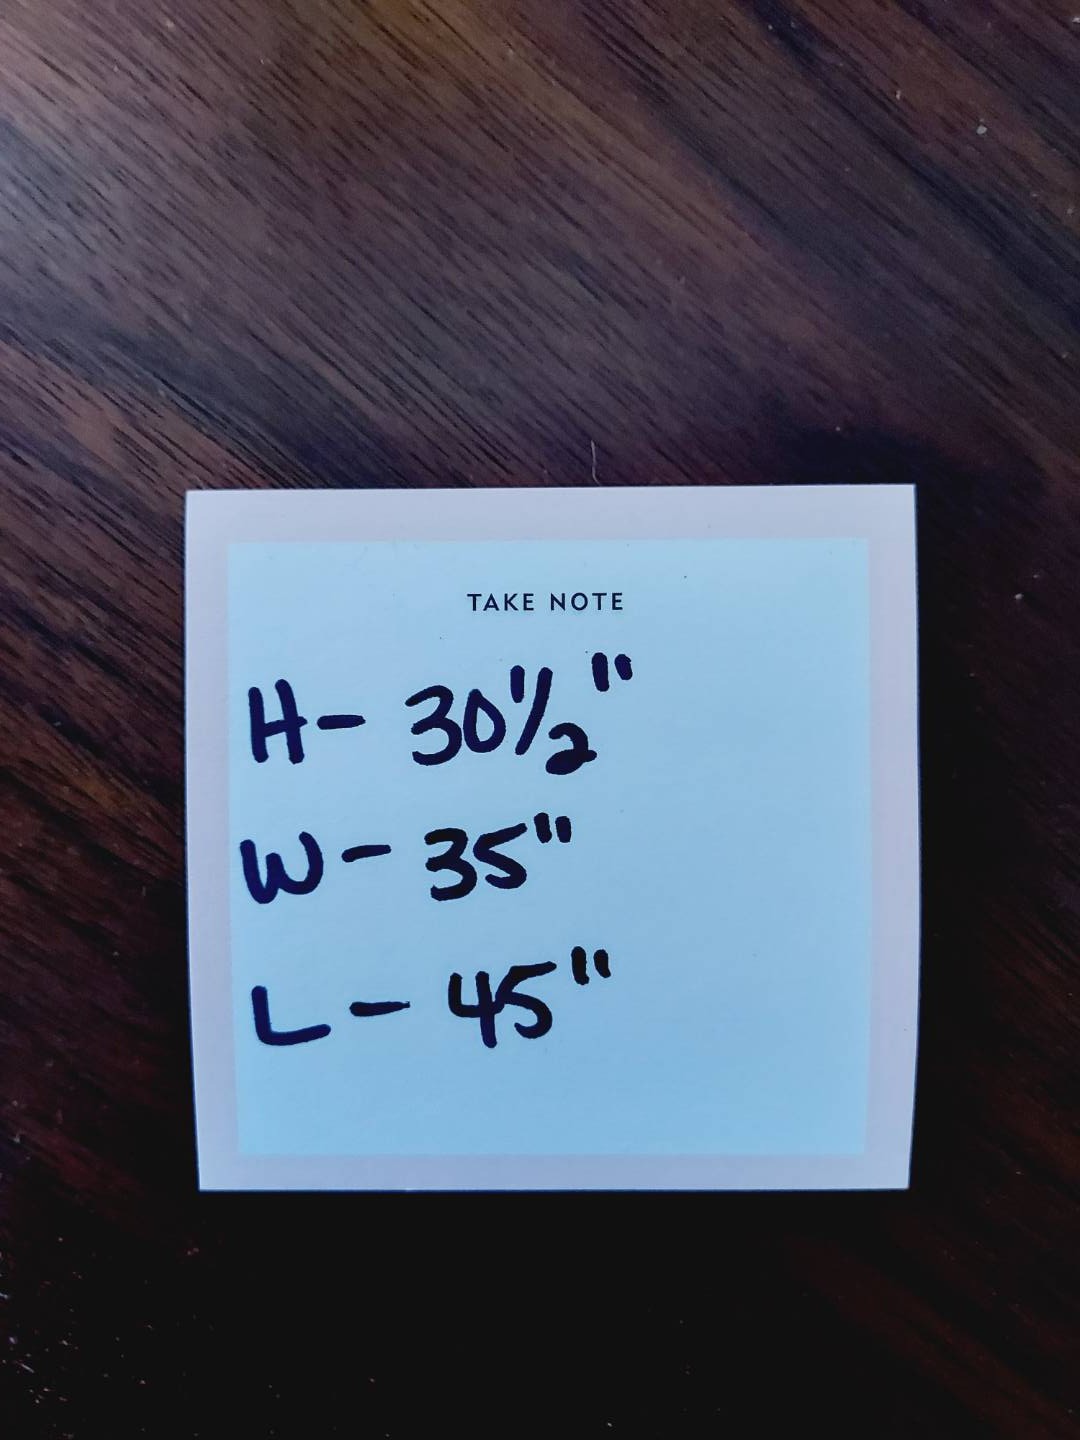 TAKE NOTE
H- 30 1/2"
W- 35"
L- 45"